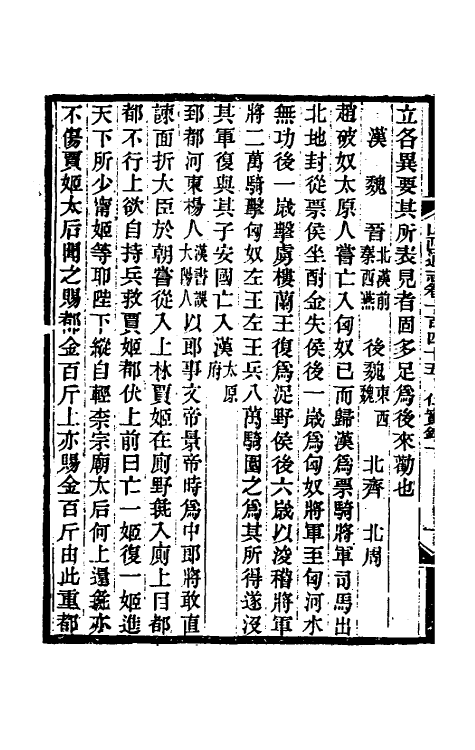 立各異要其所表見者固多足爲後來勸也
漢　魏　晉北漢前秦西燕　後魏東西魏　北齊　北周
趙破奴太原人嘗亡入匈奴已而歸漢爲票騎將軍司馬出
北地封從票侯坐酎金失侯後一歲爲匈奴將軍至匈河水
無功後一歲擊虜樓蘭王復爲浞野侯後六歲以浚稽將軍
將二萬騎擊匈奴左王左王兵八萬騎圍之爲其所得遂沒
其軍復與其子安國亡入漢太原府
郅都河東楊人漢書誤大陽人以郎事文帝景帝時爲中郎將敢直
諫面折大臣於朝嘗從入上林賈姬在廁野彘入廁上目都
都不行上欲自持兵救賈姬都伏上前曰亡一姬復一姬進
天下所少甯姬等耶陛下縱自輕柰宗廟太后何上還彘亦
不傷賈姬太后聞之賜都金百斤上亦賜金百斤由此重都
山西通志卷一百四十五　仕實錄一　一